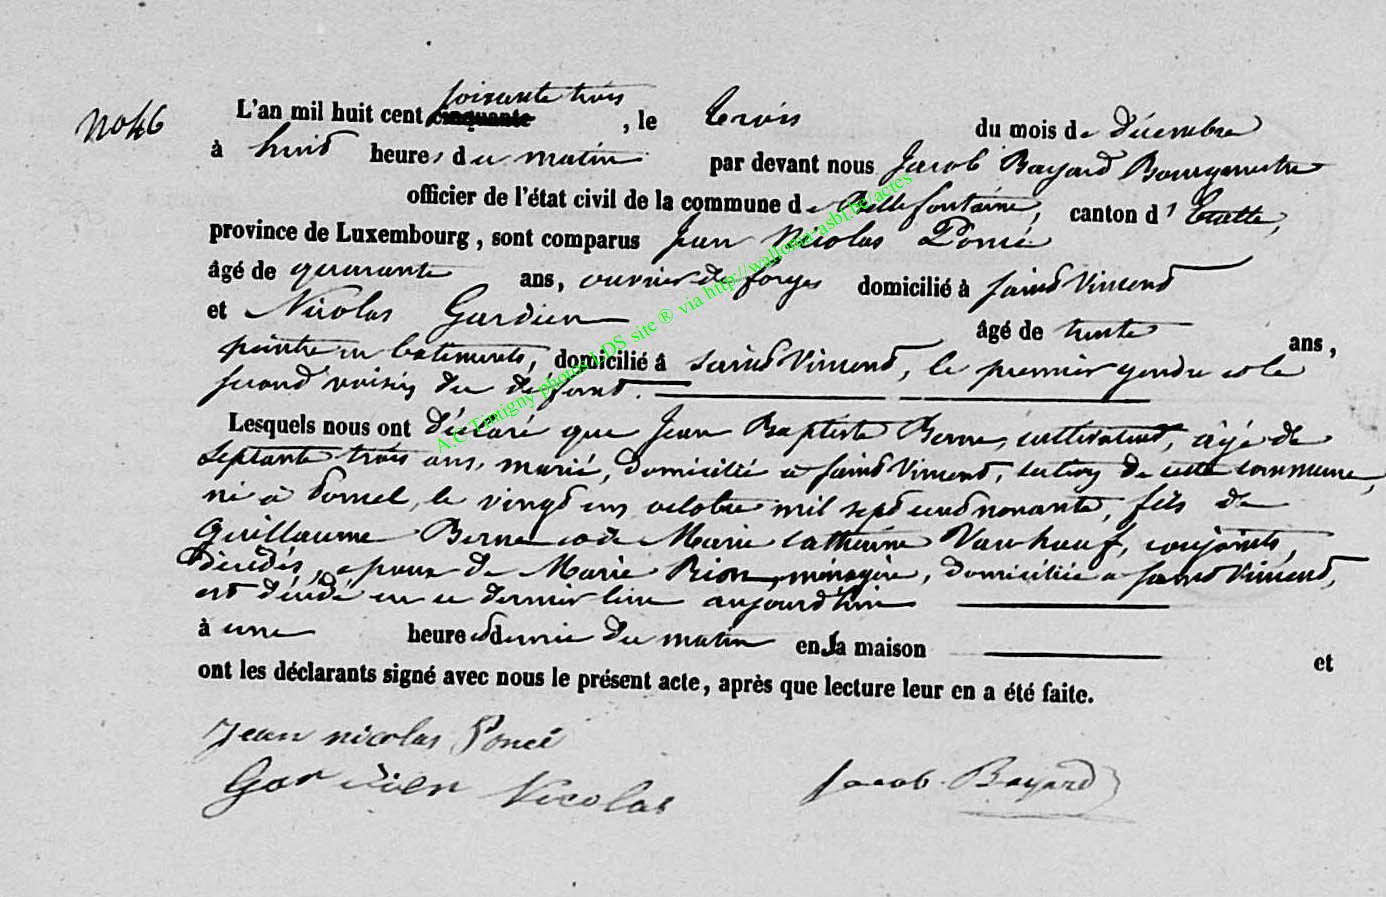 No 46
L'an mil huit cent cinquante soixante trois, le trois du mois de décembre
à huit heures du matin par devant nous Jacob Bayard Bourgmestre
officier de l'état civil de la commune de Bellefontaine, canton d'Etalle,
province de Luxembourg, sont comparus Jean Nicolas Poncé
âgé de quarante ans, ouvrier de forges domicilié à Saint Vincent
et Nicolas Gardien âgé de trente ans,
peintre en batiments, domicilié à Saint Vincent, le premier gendre et le
second voisin du défunt.
Lesquels nous ont déclaré que Jean Baptiste Berne, cultivateur, âgé de
septante trois ans, marié, domicilié à Saint Vincent, section de cette commune,
né à, le vingt un octobre mil sept cent nonante, fils de
Guillaume Berne et de Marie Catherine, conjoints,
décédés, époux de Marie Rion, ménagère, domiciliée à Saint Vincent,
est décédé en ce dernier lieu aujourd'hui
à une heure et demie du matin en sa maison et
ont les déclarants signé avec nous le présent acte, après que lecture leur en a été faite.
Jean nicolas Poncé
Gardien Nicolas Jacob Bayard
A.C Tintigny photos LDS site ® via http://wallonia-asbl.be/actes